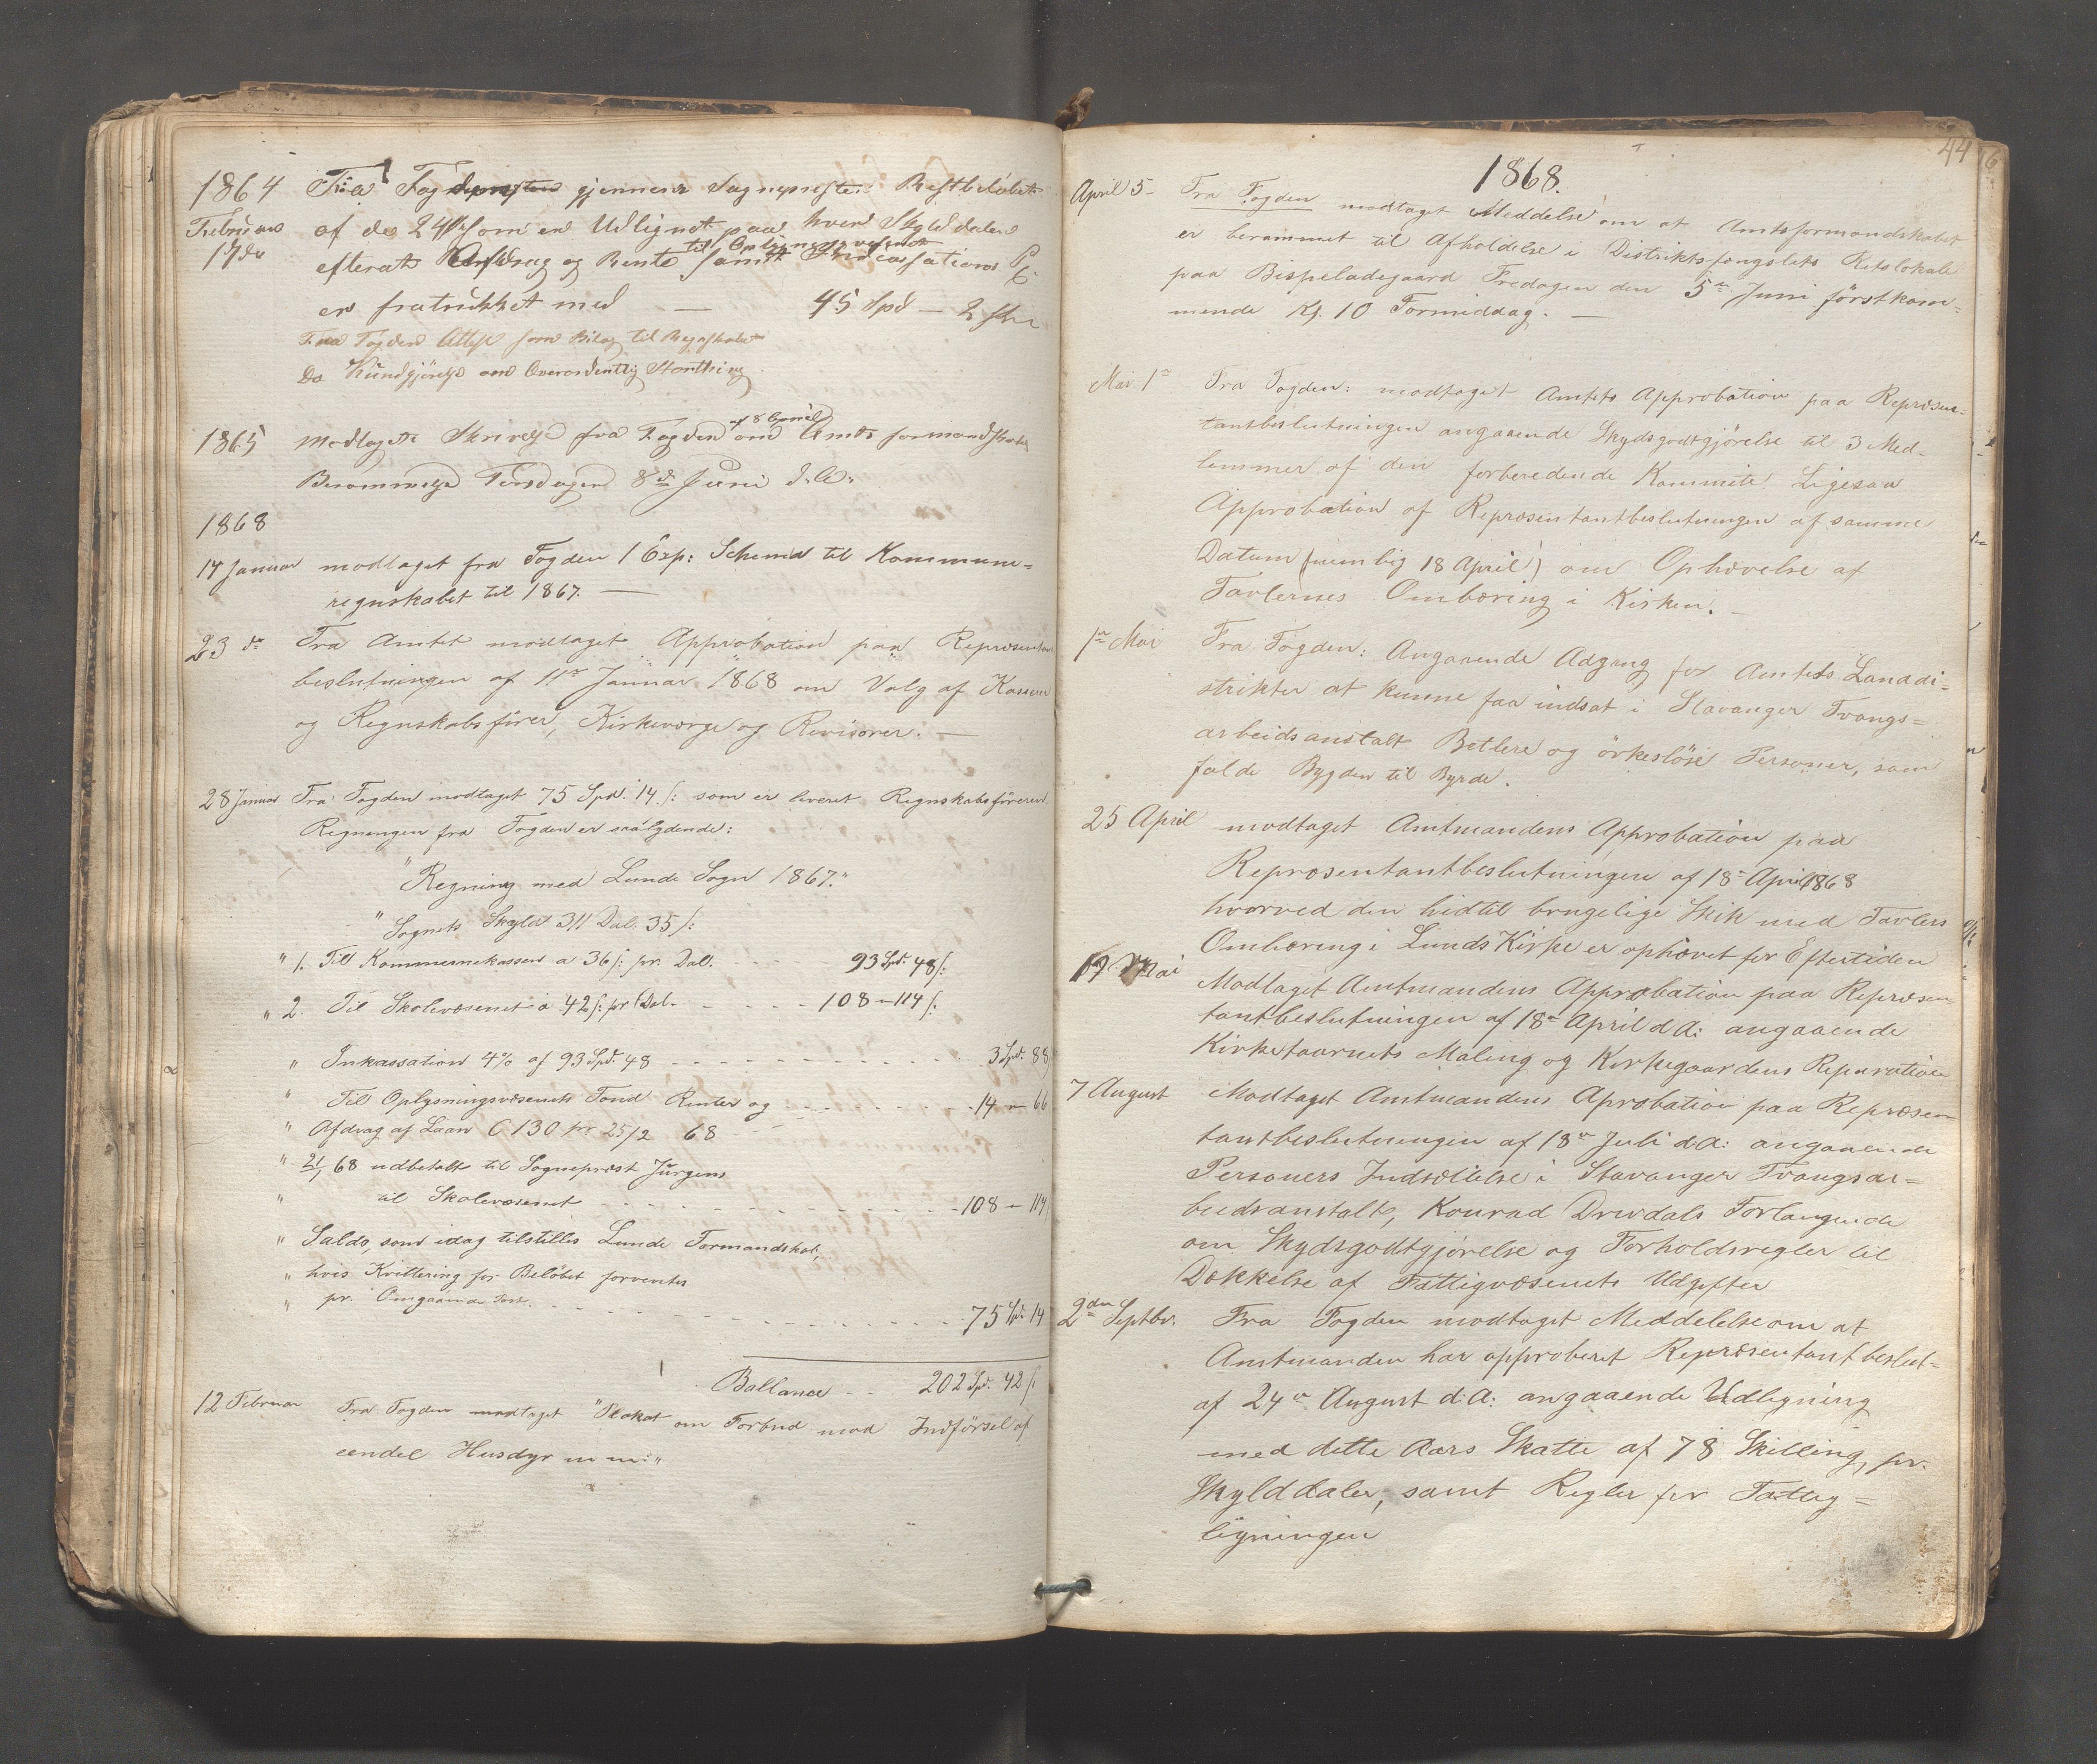 1864 Fra Fogden gjennem Sognepresten Restbeløbet
Februar af de 24 s som er Udlignet paa hver Skylddaler
17de efterat Afdrag og Rente til Oplysningsvesenet samt Incassations
er fratrukket med — 45 Spd — 2 s
Fra Fogden Attest som Bilag til Regnskabet
Do Kundgjørelse om Overordentlig Storthing
1865 modtaget Skrivelse fra Fogden af 8 April om Amtsformandskabets
Berammelse Torsdagen 8de Juni d.A.
1868
17 Januar modtaget fra Fogden 1 Exp: Schema til Kommune=
regnskabet til 1867. —
23 de Fra Amtet modtaget Approbation paa Repræsentant
beslutningen af 11te Januar 1868 om Valg af Kasserer
og Regnskabsfører, Kirkeværge og Revisorer. —
28 Januar Fra Fogden modtaget 75 Spd. 14 s: som er leveret Regnskabsføreren.
Regningen fra Fogden er saalydende:
"Regning med Lunde Sogn 1867."
" Sognets Skyld 311 Dal. 35 s:
" 1. Til Kommunekassen a 36 s: pr. Dal. - - - 93 Spd. 48 s:
" 2. Til Skolevæsenet a 42 s: pr Dal. - - - - - 108 – 114 s:
" Inkassation 4% af 93 Spd. 48 - - - - - - - - - - - - 3 Spd. 88
" Til Oplysningsvæsenets Fond Renter og - - - - - - - 14 – 66
" Afdrag af Laan C 130 pr 25/2 68
" 21/1 68 udbetalt til Sogneprest Jürgens
" til Skolevæsenet - - - - - - - - - - - - 108 – 114
" Saldo, som idag tilstilles Lunde Formandskab,
" hvis Kvittering for Beløbet forventes
" pr. Omgaaende Post. - - - - - - - - - - - - - 75 Spd. 14
Ballance - - 202 Spd. 42 s:
12 Februar Fra Fogden modtaget "Plakat om Forbud mod Indførsel af
eendel Husdyr m m:"
44
1868.
April 5 - Fra Fogden modtaget Meddelse om at Amtsformandskabet
er berammet til Afholdelse i Distriktsfængslets Retslokale
paa Bispeladegaard Fredagen den 5te Juni førstkom=
mende Kl. 10 Formiddag. —
Mai 1te Fra Fogden: modtaget Amtets Approbation paa Repræsen=
tantbeslutningen angaaende Skydsgodtgjørelse til 3 Med=
lemmer af den forberedende Kommite. Ligesaa
Approbation af Repræsentantbeslutningen af samme
Datum (nemlig 18 April) om Ophævelse af
Tavlernes Ombæring i Kirken. —
1te Mai Fra Fogden: Angaaende Adgang for Amtets Landdi=
strikter at kunne faa indsat i Stavanger Tvangs=
arbeidsanstalt Betlere og ørkesløse Personer, som
falde Bygden til Byrde.
25 April modtaget Amtmandens Approbation paa
Repræsentantbeslutningen af 18de April 1868
hvorved den hidtil brugelige Skik med Tavlers
Ombæring i Lunds Kirke er ophævet for Eftertiden
19 Mai Modtaget Amtmandens Approbation paa Repræsen
tantbeslutningen af 18de April d A: angaaende
Kirketaarnets Maling og Kirkegaardens Reparation
7 August Modtaget Amtmandens Aprobation paa Repræsen
tantbeslutningen af 18de Juli d.A: angaaende
Personers Indsættelse i Stavanger Tvangsar=
beidsanstalt, Konrad Drivdals Forlangende
om Skydsgodtgjørelse og Forholdsregler til
Dækkelse af Fattigvæsenets Udgifter
2den Septbr. Fra Fogden modtaget Meddelelse om at
Amtmanden har approberet Repræsentantbeslut=
af 24de August d:A: angaaende Udligning
med dette Aars Skatte af 78 Skilling pr.
Skylddaler, samt Regler for Fattig=
ligningen